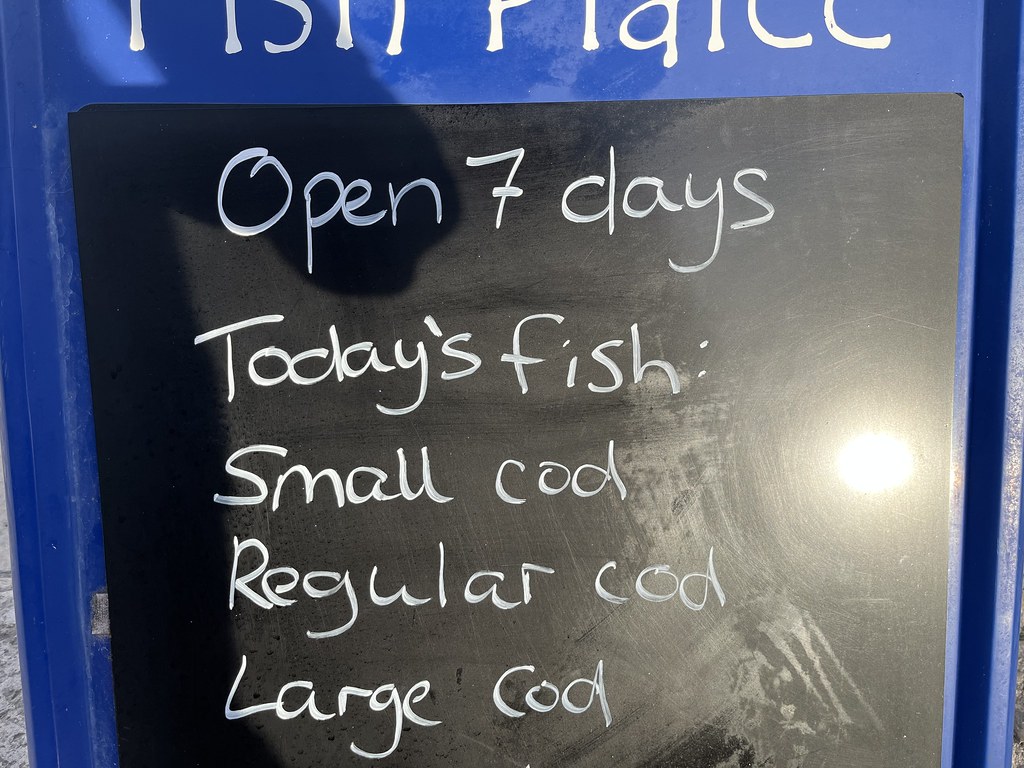 Fish Plaice
Open 7 days
Today's fish:
Small cod
Regular cod
Large cod